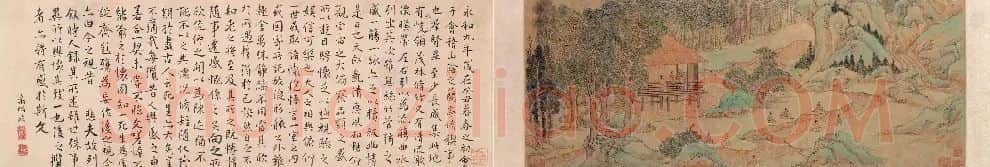 永和九年歲在癸丑暮春之初會
于會稽山陰之蘭亭脩稧事
也羣賢畢至少長咸集此地
有峻領茂林脩竹又有清流激
湍暎帶左右引以為流觴曲水
列坐其次雖無絲竹管弦之
盛一觴一詠亦足以暢敘幽情
是日也天朗氣清惠風和暢仰
觀宇宙之大俯察品類之盛
所以遊目騁懷足以極視聽之
娛信可樂也夫人之相與俯仰
一世或取諸懷抱悟言一室之內
或因寄所託放浪形骸之外雖
趣舍萬殊靜躁不同當其欣
於所遇蹔得於己怏然自足不
知老之將至及其所之既惓情
隨事遷感慨係之矣向之所
欣俛仰之間以為陳迹猶不
能不以之興懷況脩短隨化終
期於盡古人云死生亦大矣豈
不痛哉每攬昔人興感之由
若合一契未嘗不臨文嗟悼不
能喻之於懷固知一死生為虛
誕齊彭殤為妄作後之視今
亦由今之視昔 悲夫故列
敘時人錄其所述雖世殊事
異所以興懷其致一也後之攬
者亦將有感於斯文